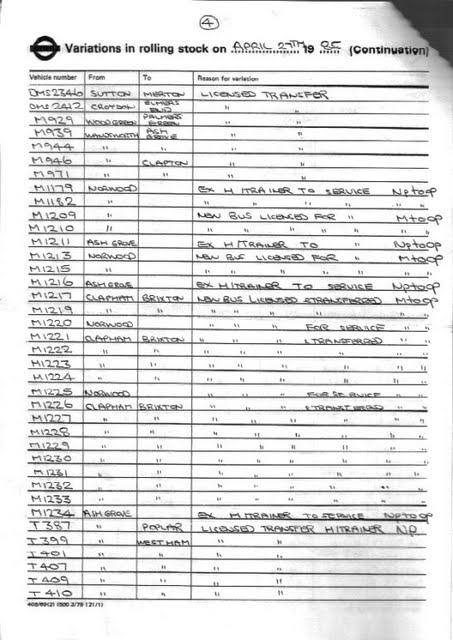 4
Variations in rolling stock on APRIL 27TH 19 85 (Continuation)
Vehicle number From To Reason for variation
DMS2346 SUTTON MERTON LICENSED TRANSFER
DMS 2412 CROYDON ELMERS END " "
M929 WOOD GREEN PALMERS GREEN " "
M939 WANDSWORTH ASH GROVE " "
M944 " " " "
M946 " CLAPTON " "
M971 " " " "
M1179 NORWOOD EX H/TRAINER TO SERVICE NP to OP
M1182 " " " " " " "
M1209 " NEW BUS LICENSED FOR " M to OP
M1210 " " " " " " "
M1211 ASH GROVE EX H/TRAINER TO " NP to OP
M1213 NORWOOD NEW BUS LICENSED FOR " M to OP
M1215 " " " " " " "
M1216 ASH GROVE EX H/TRAINER TO SERVICE NP to OP
M1217 CLAPHAM BRIXTON NEW BUS LICENSED & TRANSFERRED M to OP
M1219 " " " " " " "
M1220 NORWOOD " " " FOR SERVICE " "
M1221 CLAPHAM BRIXTON " " " & TRANSFERRED " "
M1222 " " " " " " " "
M1223 " " " " " " " "
M1224 " " " " " " " "
M1225 NORWOOD " " " FOR SERVICE " "
M1226 CLAPHAM BRIXTON " " " & TRANSFERRED " "
M1227 " " " " " " " "
M1228 " " " " " " " "
M1229 " " " " " " " "
M1230 " " " " " " " "
M1231 " " " " " " " "
M1232 " " " " " " " "
M1233 " " " " " " " "
M1234 ASH GROVE EX H/TRAINER TO SERVICE NP to OP
T387 " POPLAR LICENSED TRANSFER H/TRAINER NP
T399 " WEST HAM " "
T401 " " " "
T407 " " " "
T409 " " " "
T410 " " " "